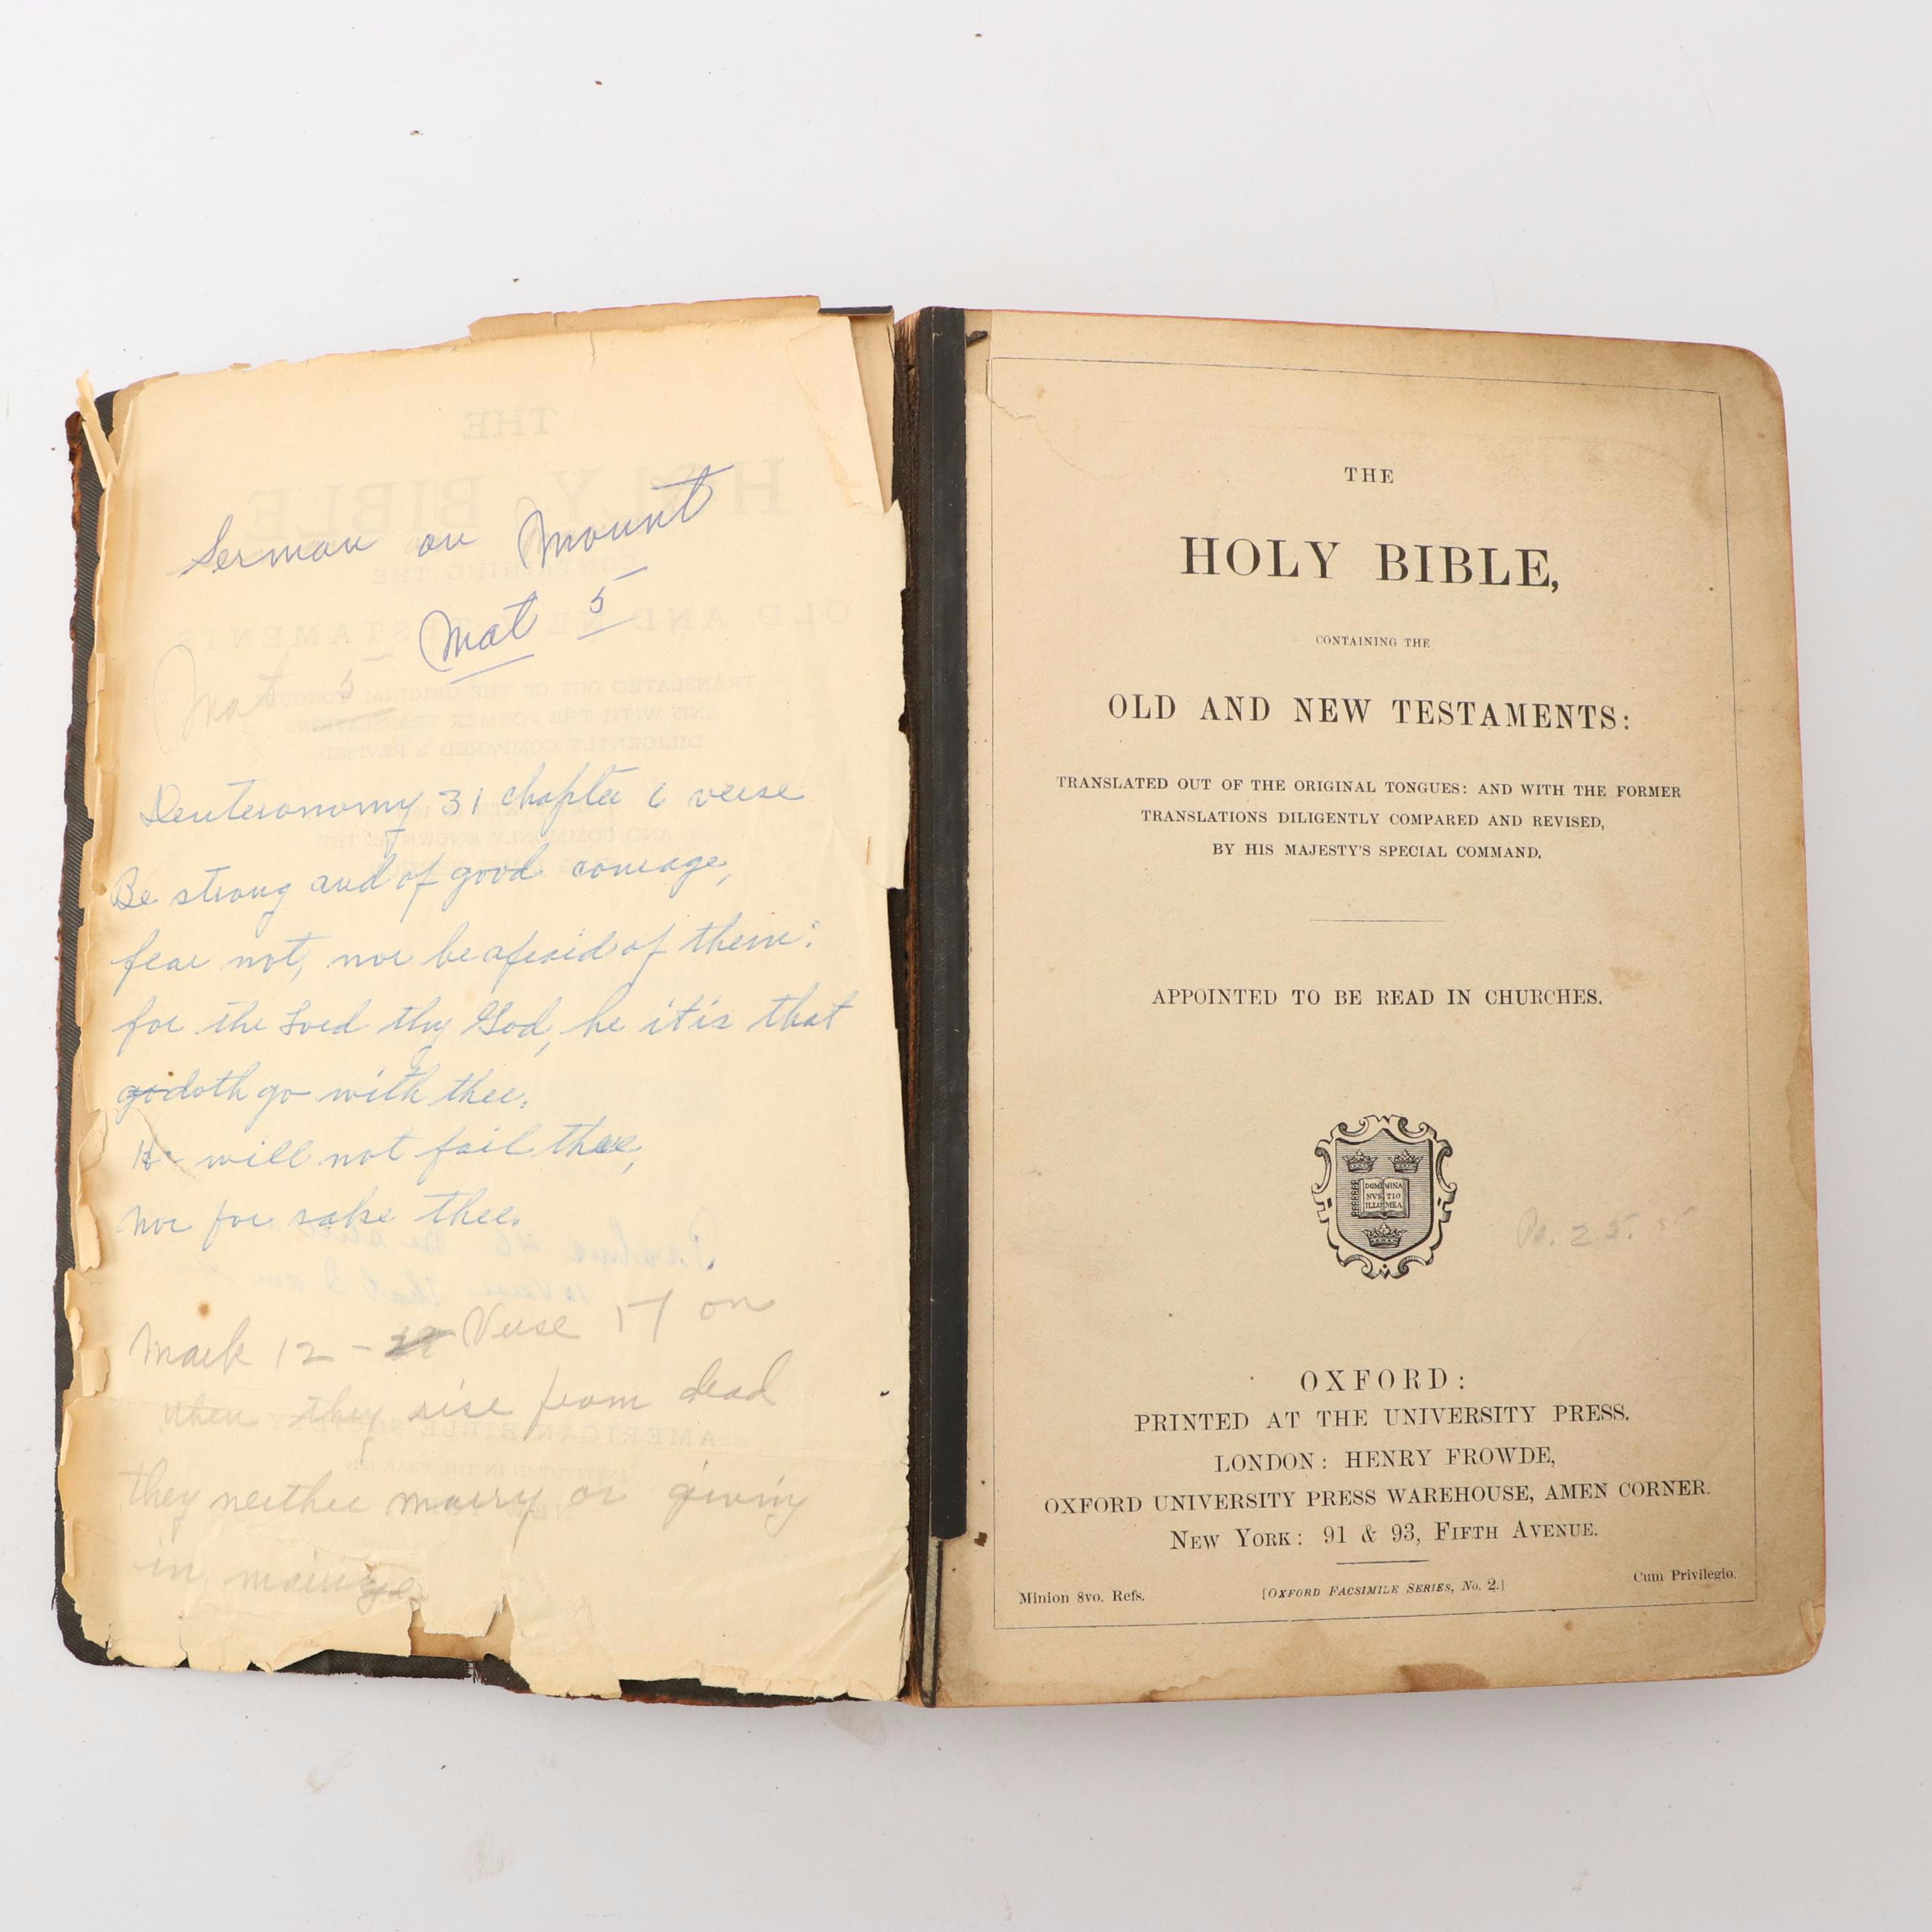 Sermon on Mount
Mat 5
Mat 5
Deuteronomy 31 chapter 6 verse
Be strong and of good courage,
fear not, nor be afraid of them:
for the Lord thy God, he it is that
go doth go with thee.
He will not fail thee,
nor for sake thee.
Mark 12 - Verse 17 on
when they rise from dead
they neither marry or giving
in marriage
THE
HOLY BIBLE,
CONTAINING THE
OLD AND NEW TESTAMENTS:
TRANSLATED OUT OF THE ORIGINAL TONGUES: AND WITH THE FORMER
TRANSLATIONS DILIGENTLY COMPARED AND REVISED,
BY HIS MAJESTY'S SPECIAL COMMAND.
APPOINTED TO BE READ IN CHURCHES.
DOMI MINA
NVS TIO
ILLU MEA
Ps. 25.
OXFORD:
PRINTED AT THE UNIVERSITY PRESS.
LONDON: HENRY FROWDE,
OXFORD UNIVERSITY PRESS WAREHOUSE, AMEN CORNER.
NEW YORK: 91 & 93, FIFTH AVENUE.
Minion 8vo. Refs.
[OXFORD FACSIMILE SERIES, No. 2.]
Cum Privilegio.